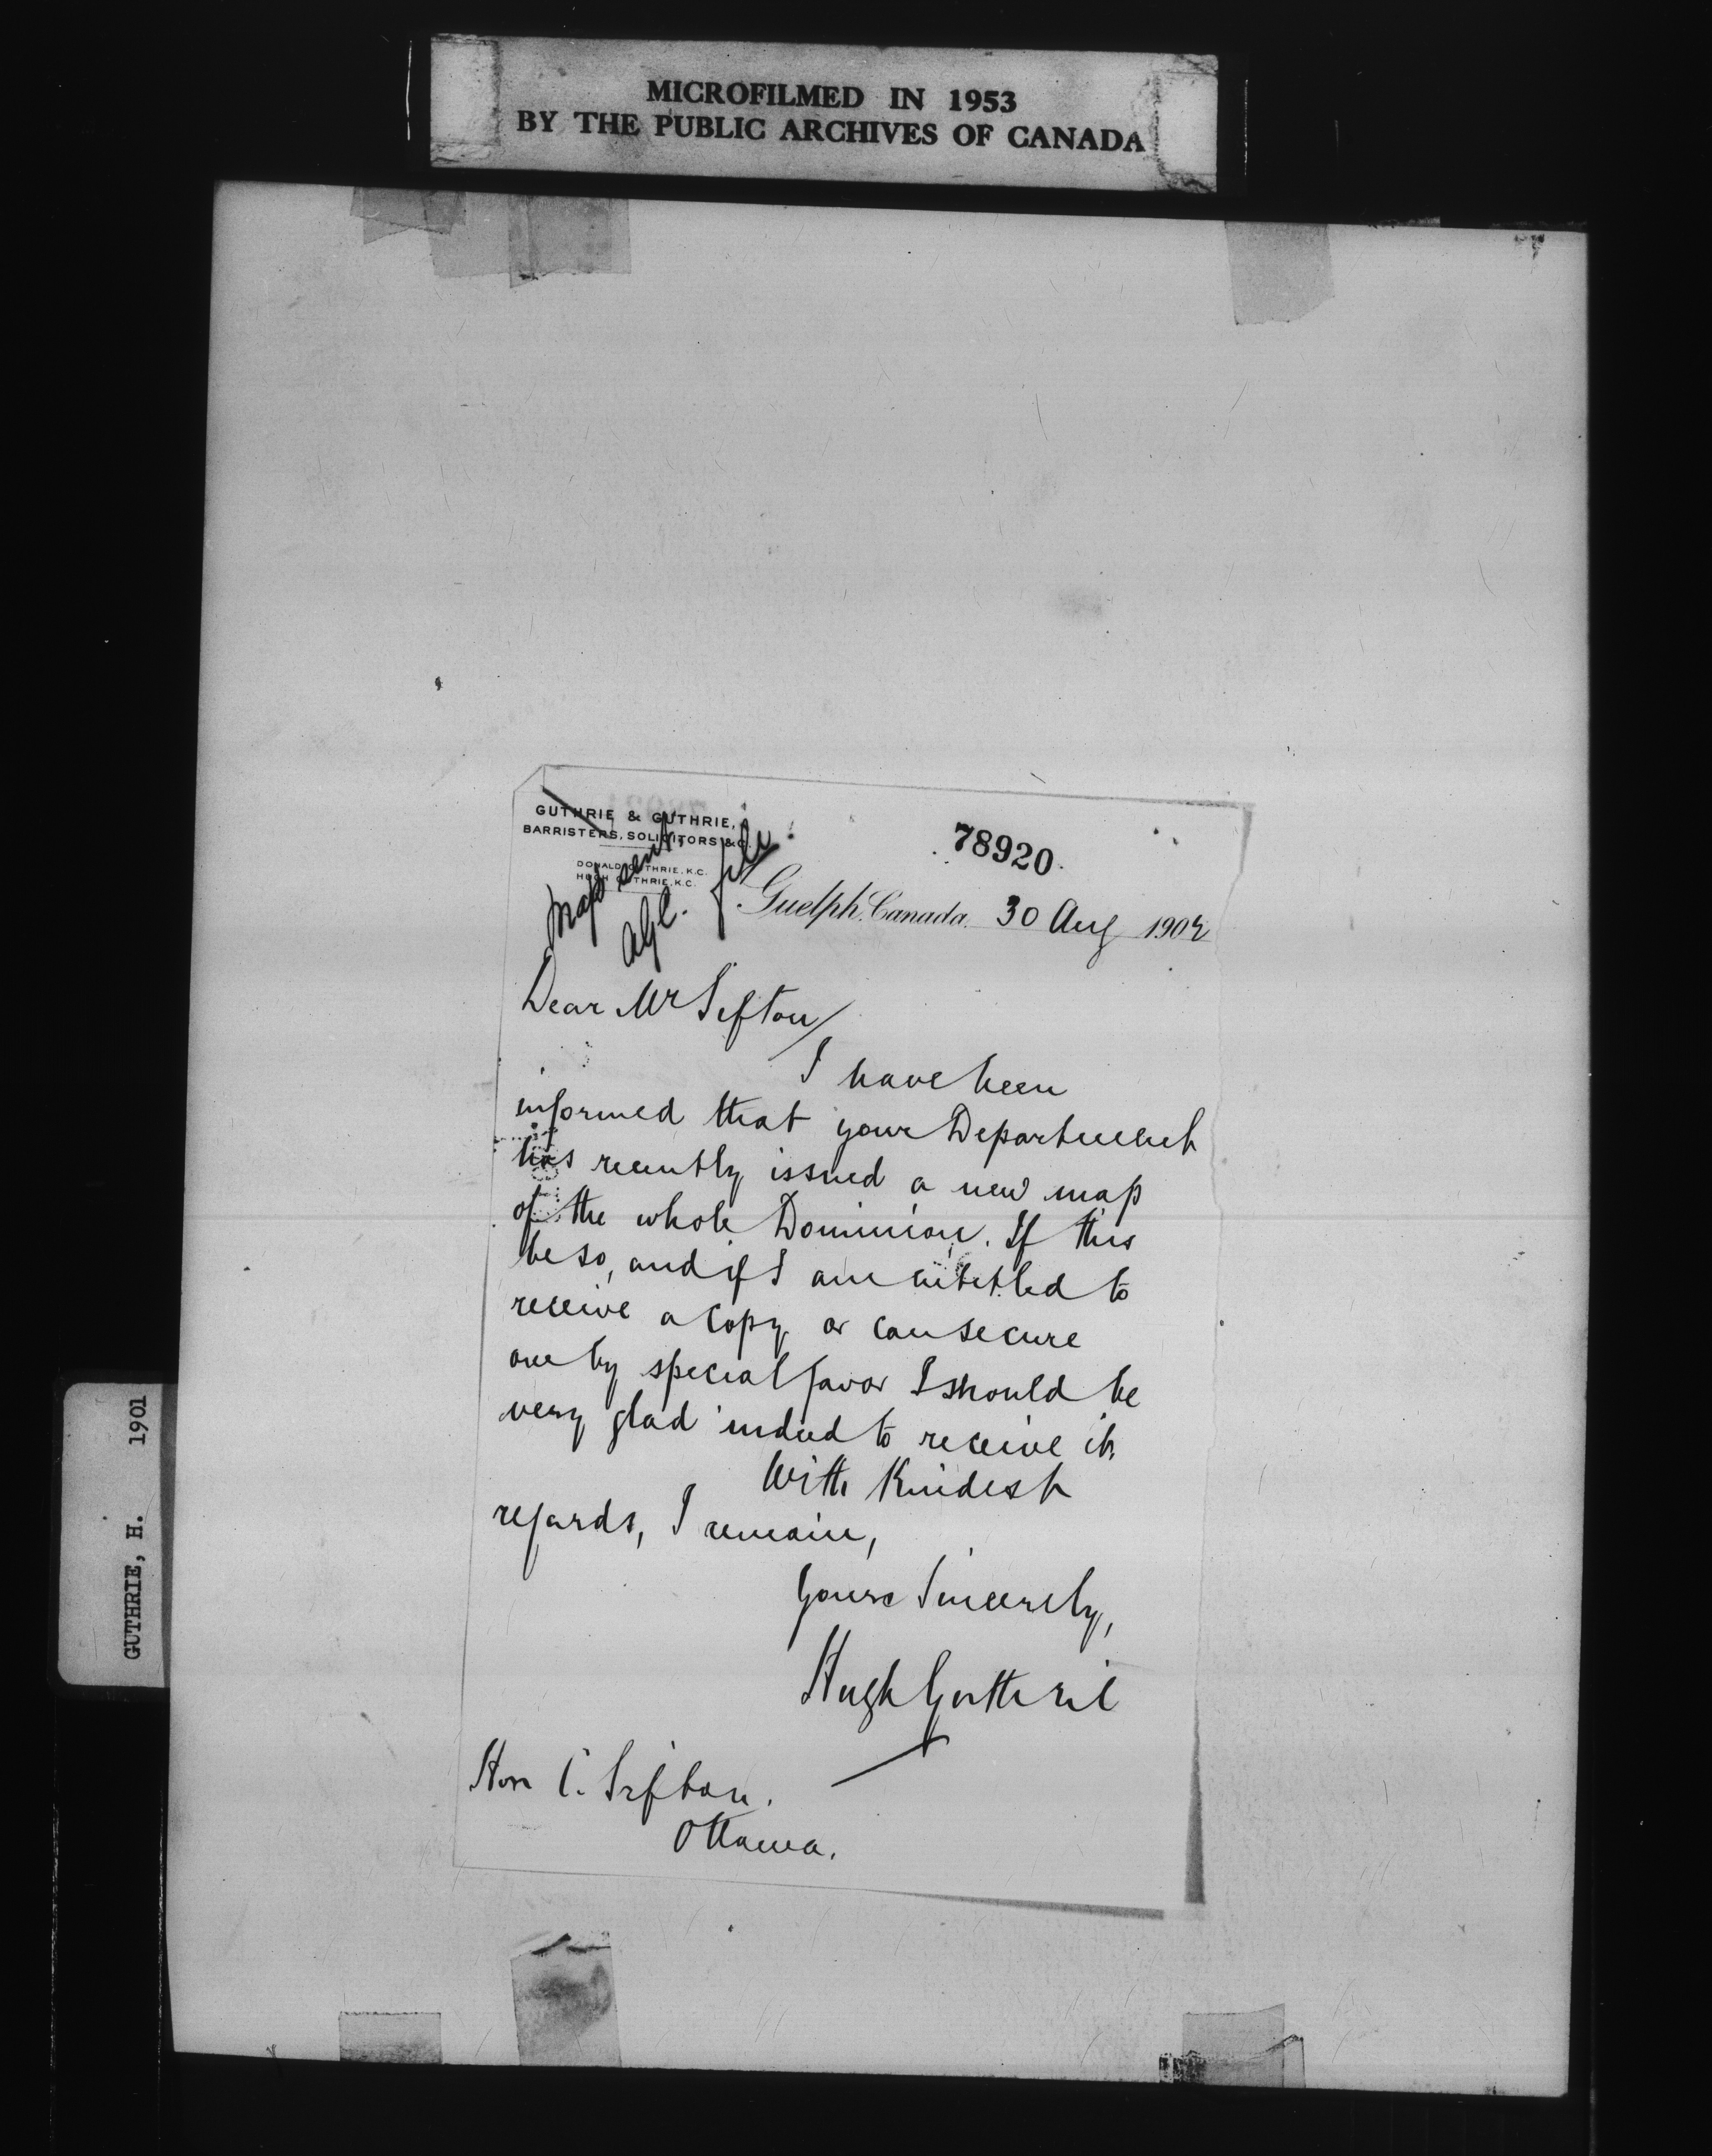 MICROFILMED IN 1953
BY THE PUBLIC ARCHIVES OF CANADA
GUTHRIE & GUTHRIE,
BARRISTERS, SOLICITORS &C.
DONALD GUTHRIE, K.C.
HUGH GUTHRIE, K.C.
Map sent
file
78920
Guelph, Canada. 30 Aug 1902
Dear Mr Sifton/
I have been
informed that your Department
has recently issued a new map
of the whole Dominion. If this
be so, and if I am entitled to
receive a copy or can secure
one by special favor I should be
very glad indeed to receive it.
With Kindest
regards, I remain,
Yours Sincerely,
Hugh Guthrie
Hon C. Sifton.
Ottawa.
GUTHRIE, H. 1901